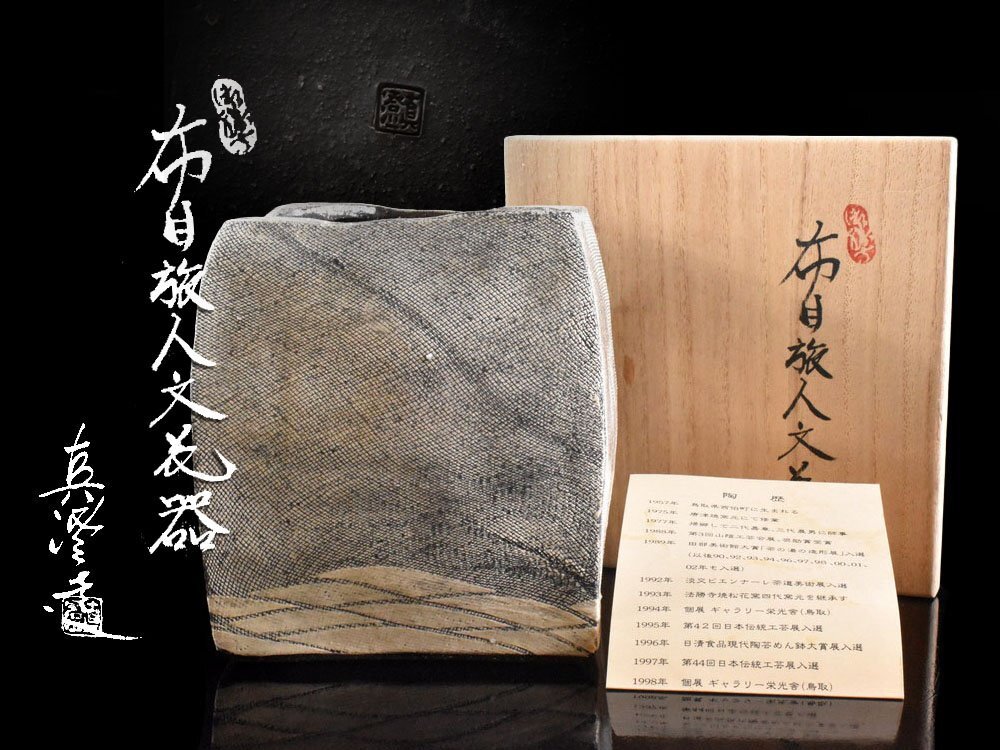 布目旅人文花器
布目旅人文花
陶歴
1957年 鳥取県西伯町に生まれる
1975年 唐津焼窯元にて修業
1977年 帰郷して二代喜章、三代晨男に師事
1988年 第3回山陰工芸官展、奨励賞受賞
1989年 田部美術館大賞「茶の湯の造形展」入選
(以後90、92、93、94、96、97、98、00、01、
02年も入選)
1992年 淡交ビエンナーレ茶道美術展入選
1993年 法勝寺焼松花窯四代窯元を継承す
1994年 個展 ギャラリー栄光舎(鳥取)
1995年 第42回日本伝統工芸展入選
1996年 日清食品現代陶芸めん鉢大賞展入選
1997年 第44回日本伝統工芸展入選
1998年 個展 ギャラリー栄光舎(鳥取)